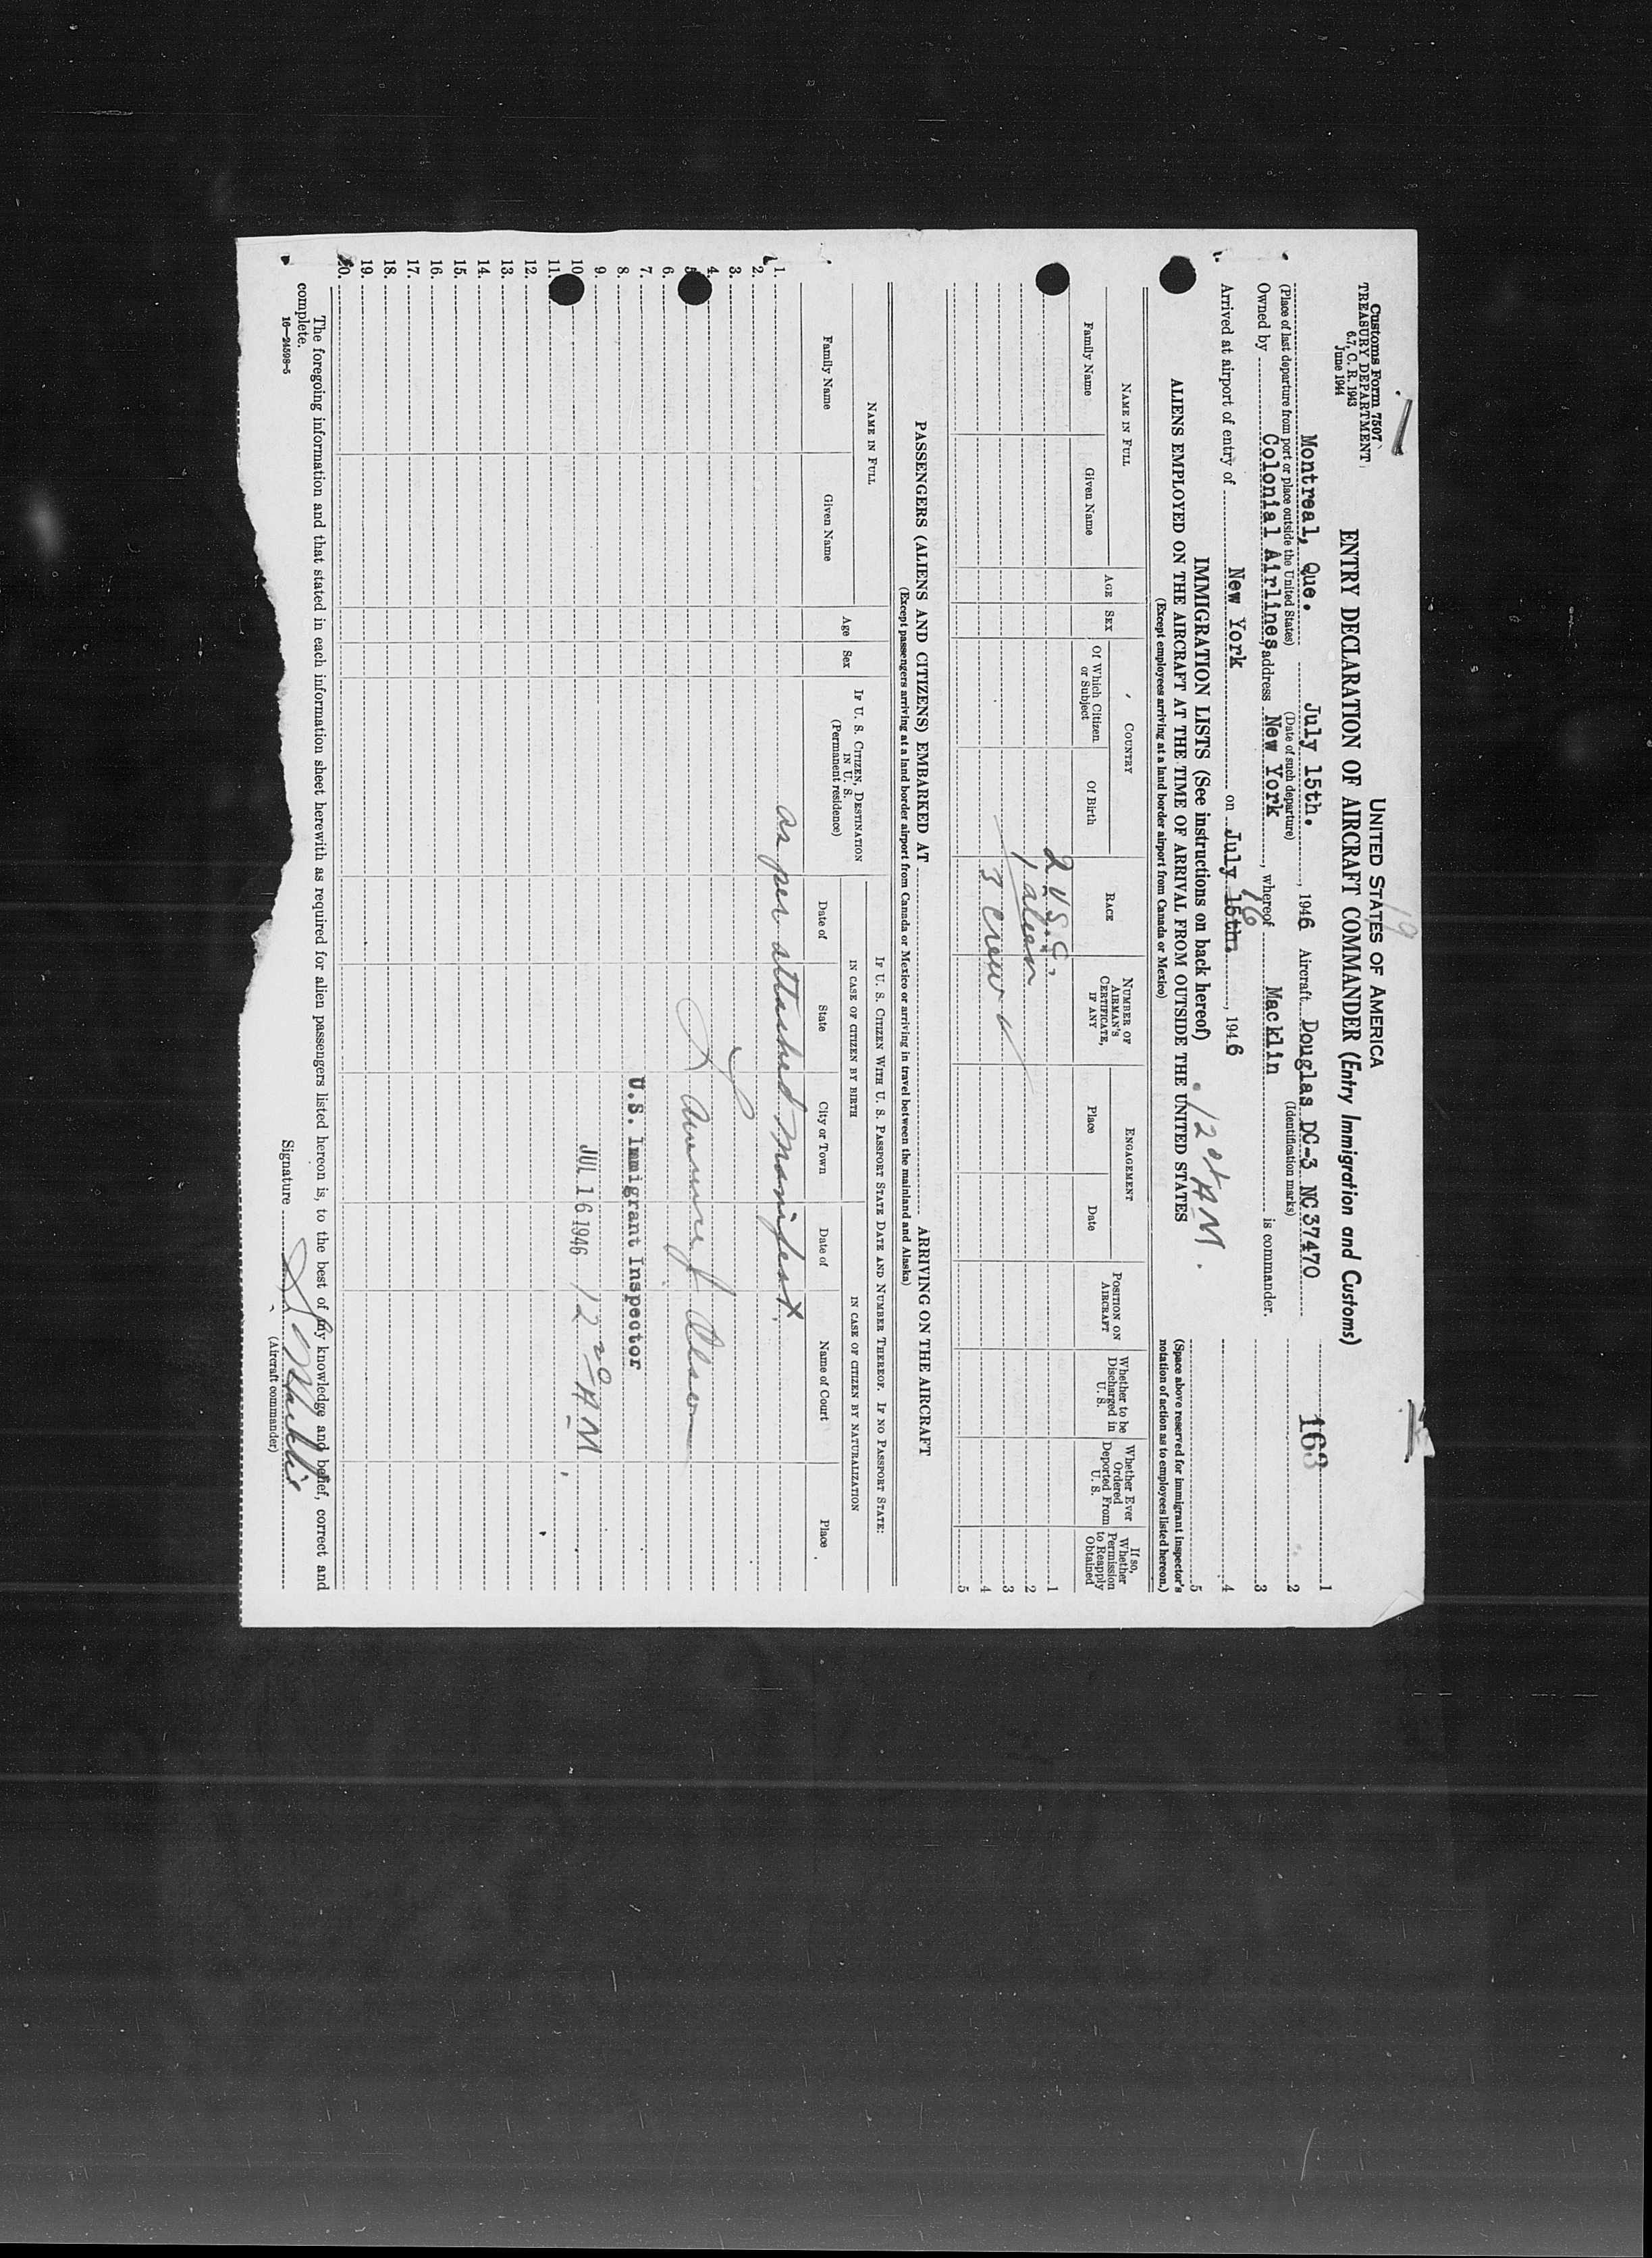 19
Customs Form 7507
TREASURY DEPARTMENT
6.7, C. R. 1943
June 1944
UNITED STATES OF AMERICA
ENTRY DECLARATION OF AIRCRAFT COMMANDER (Entry Immigration and Customs)
163
Montreal, Que. July 15th. , 1946 Aircraft Douglas DC-3 NC37470
(Place of last departure from port or place outside the United States) (Date of such departure) (Identification marks)
Owned by Colonial Airlines, address New York, whereof Macklin is commander.
16
Arrived at airport of entry of New York on July 15th. , 1946
12 01 AM.
1
2
3
4
5
IMMIGRATION LISTS (See instructions on back hereof)
ALIENS EMPLOYED ON THE AIRCRAFT AT THE TIME OF ARRIVAL FROM OUTSIDE THE UNITED STATES
(Except employees arriving at a land border airport from Canada or Mexico)
(Space above reserved for immigrant inspector's
notation of action as to employees listed hereon.)
NAME IN FULL
Family Name
Given Name
AGE
SEX
COUNTRY
Of Which Citizen
or Subject
Of Birth
RACE
NUMBER OF
AIRMAN'S
CERTIFICATE,
IF ANY
ENGAGEMENT
Place
Date
POSITION ON
AIRCRAFT
Whether to be
Discharged in
U. S.
Whether Ever
Ordered
Deported From
U. S.
If so,
Whether
Permission
to Reapply
Obtained
2 U.S.C. 1
1 alien 2
3
3 crew 4
5
PASSENGERS (ALIENS AND CITIZENS) EMBARKED AT ARRIVING ON THE AIRCRAFT
(Except passengers arriving at a land border airport from Canada or Mexico or arriving in travel between the mainland and Alaska)
NAME IN FULL
Family Name
Given Name
Age
Sex
IF U. S. CITIZEN, DESTINATION
IN U. S.
(Permanent residence)
IF U. S. CITIZEN WITH U. S. PASSPORT STATE DATE AND NUMBER THEREOF. IF NO PASSPORT STATE:
IN CASE OF CITIZEN BY BIRTH
IN CASE OF CITIZEN BY NATURALIZATION
Date of
State
City or Town
Date of
Name of Court
Place
1. as per attached manifest.
2.
3.
4.
5.
6.
7.
8. U.S. Immigrant Inspector
9.
10. JUL 16 1946 12 20 AM
11.
12.
13.
14.
15.
16.
17.
18.
19.
20.
The foregoing information and that stated in each information sheet herewith as required for alien passengers listed hereon is, to the best of my knowledge and belief, correct and
complete.
16—24598-5
Signature Macklin
(Aircraft commander)